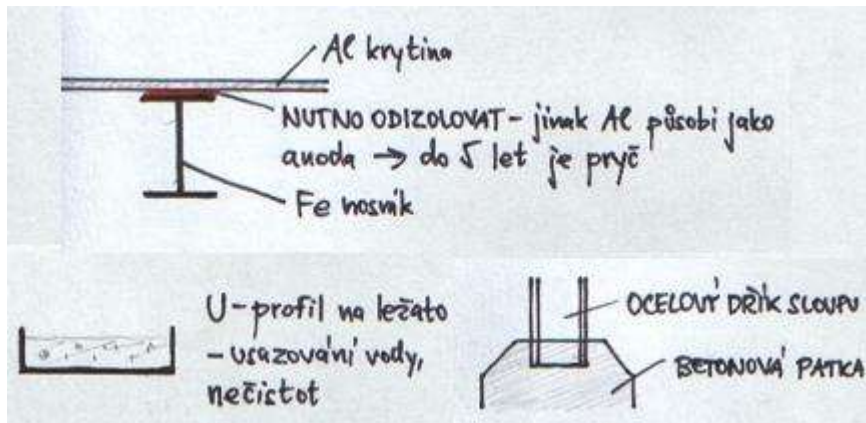 Al krytina
NUTNO ODIZOLOVAT - jinak Al působí jako
anoda → do 5 let je pryč
Fe nosník
U-profil na ležato
- usazování vody,
nečistot
OCELOVÝ DŘÍK SLOUPU
BETONOVÁ PATKA